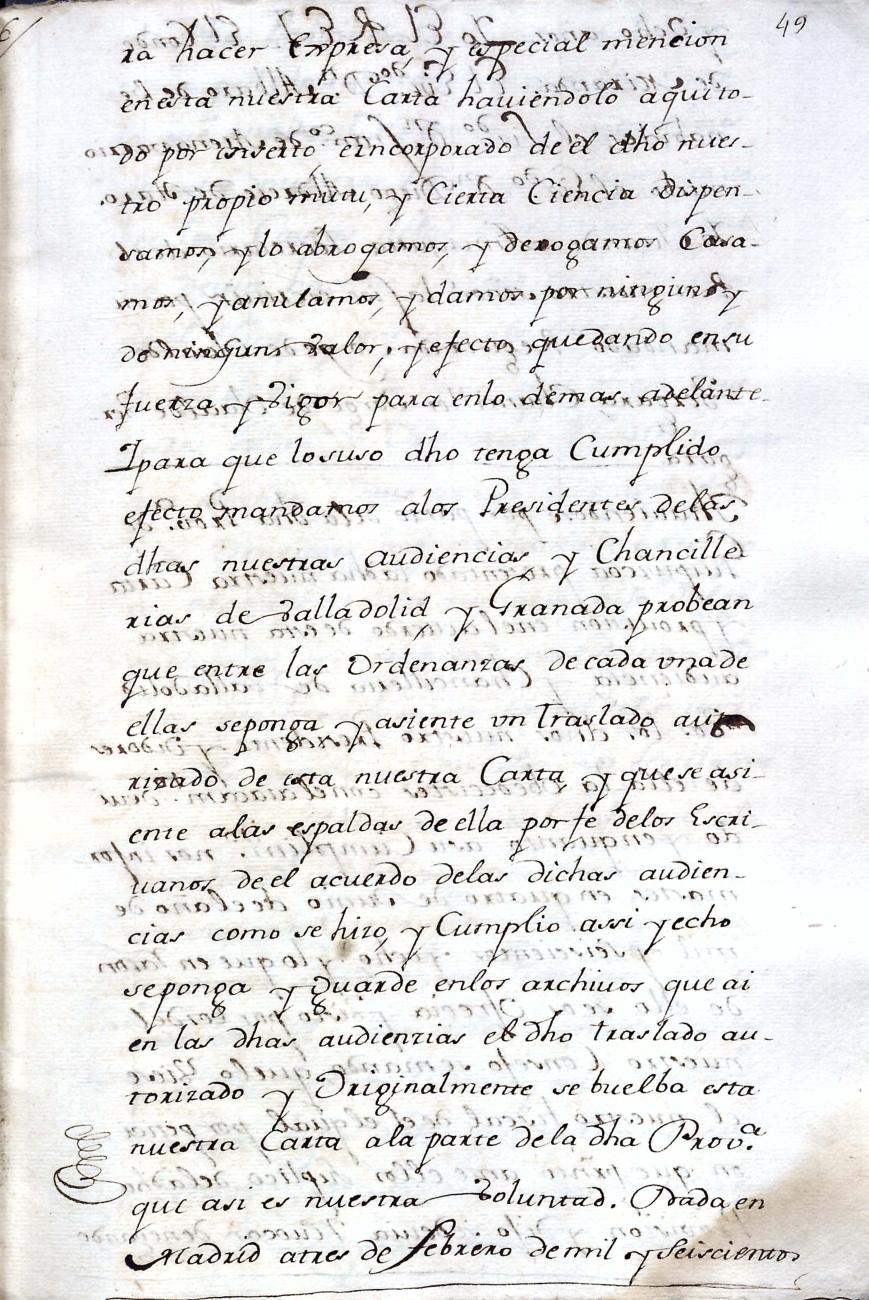 49
ra hacer Enpresa, y especial mencion
enesta nuestra Carta haviendolo aquito-
do por inserto, eincorporado de el dho nues-
tro propio mutu, y Cierta Ciencia dispen-
samos, ylo abrogamos, y derogamos Casa-
mos, yanulamos, y damos por ninguno y
de ningun valor, yefecto, quedando ensu
fuerza y Vigor para enlo demas adelante
Ipara que losuso dho tenga Cumplido
efecto mandamos alos Presidentes delas
dhas nuestras audiencias y Chancille
rias de Valladolid y Granada probean
que entre las Ordenanzas de cada vna de
ellas seponga y asiente vn Traslado auto
rizado de esta nuestra Carta y que se asi-
ente alas espaldas de ella por fe delos Escri-
vanos de el acuerdo delas dichas audien-
cias como se hizo, y Cumplio assi y echo
seponga y Guarde enlos archivos que ai
en las dhas audienzias el dho traslado au-
torizado y Originalmente se buelba esta
nuestra Carta ala parte de la dha Prov.ª
que asi es nuestra Voluntad. Dada en
Madrid atres de febrero de mil y seiscientos